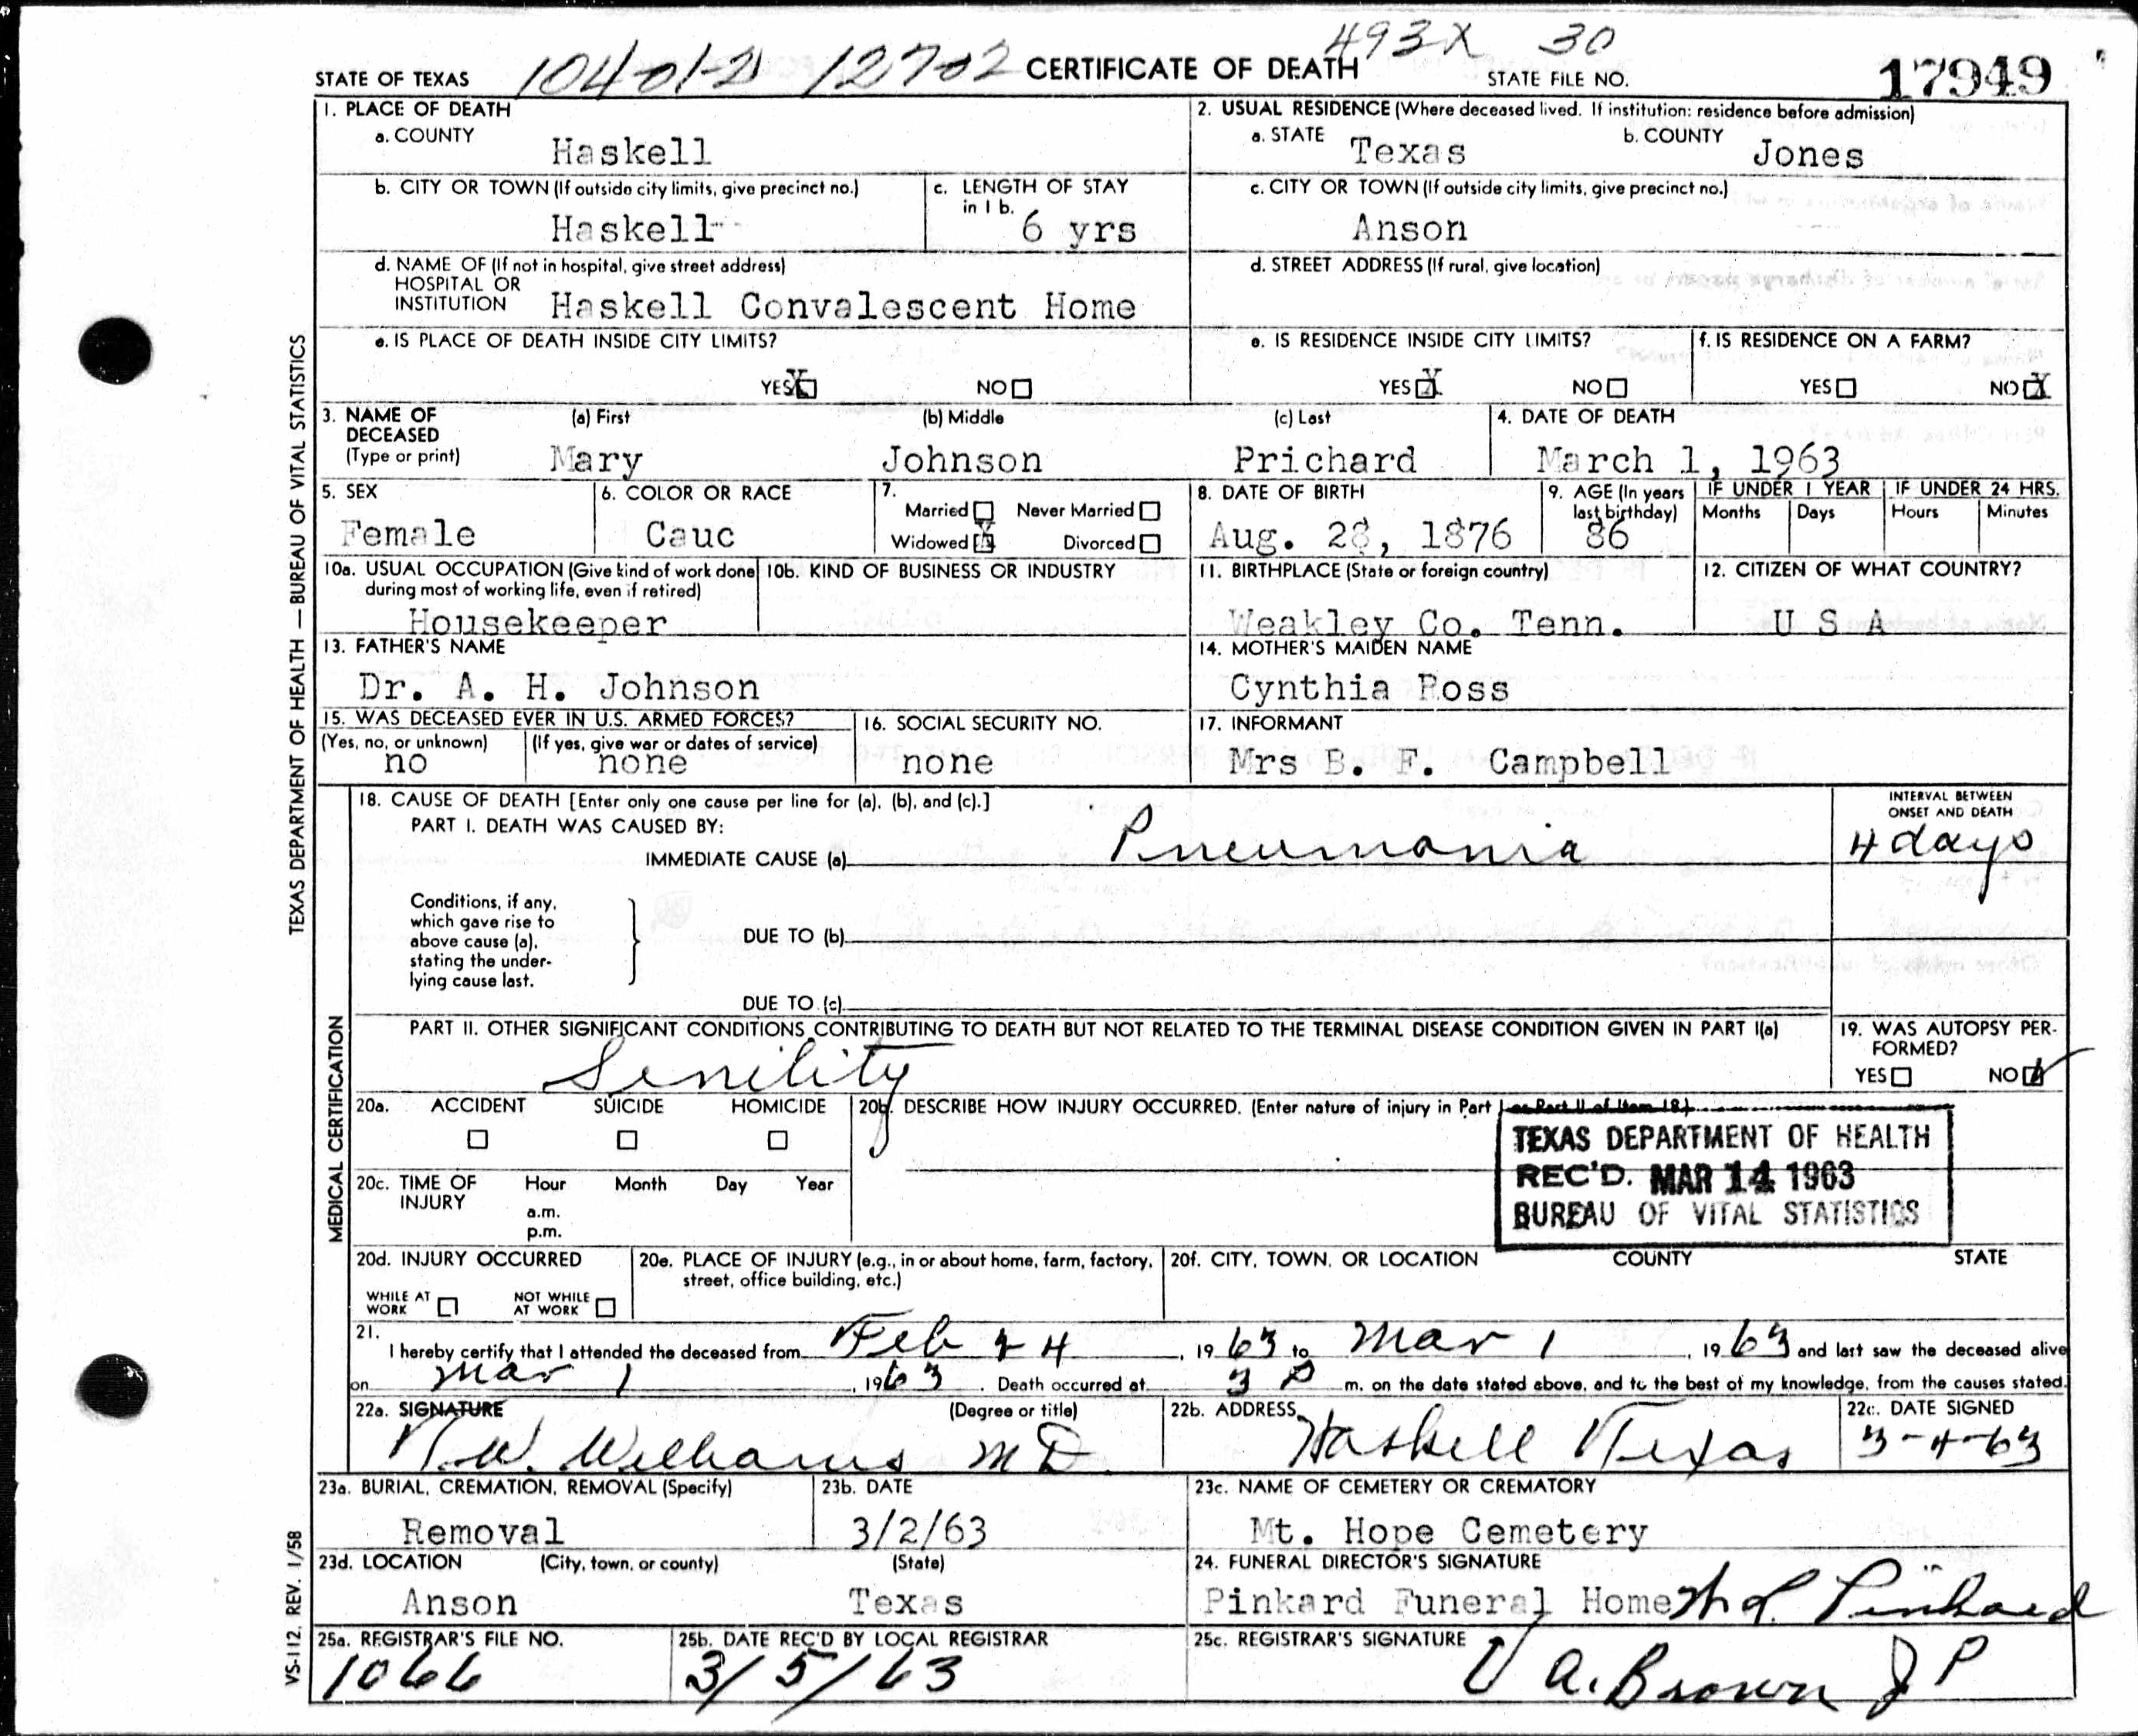 10401-21 12702 493X 30
STATE OF TEXAS CERTIFICATE OF DEATH STATE FILE NO. 17949
1. PLACE OF DEATH
a. COUNTY Haskell
2. USUAL RESIDENCE (Where deceased lived. If institution: residence before admission)
a. STATE Texas b. COUNTY Jones
b. CITY OR TOWN (If outside city limits, give precinct no.) Haskell
c. LENGTH OF STAY in 1 b. 6 yrs
c. CITY OR TOWN (If outside city limits, give precinct no.) Anson
d. NAME OF (If not in hospital, give street address)
HOSPITAL OR
INSTITUTION Haskell Convalescent Home
d. STREET ADDRESS (If rural, give location)
e. IS PLACE OF DEATH INSIDE CITY LIMITS?
YES X NO
e. IS RESIDENCE INSIDE CITY LIMITS?
YES X NO
f. IS RESIDENCE ON A FARM?
YES NO X
3. NAME OF DECEASED (Type or print)
(a) First Mary
(b) Middle Johnson
(c) Last Prichard
4. DATE OF DEATH March 1, 1963
5. SEX Female
6. COLOR OR RACE Cauc
7. Married Never Married
Widowed X Divorced
8. DATE OF BIRTH Aug. 28, 1876
9. AGE (In years last birthday) 86
IF UNDER 1 YEAR Months Days
IF UNDER 24 HRS. Hours Minutes
10a. USUAL OCCUPATION (Give kind of work done during most of working life, even if retired)
Housekeeper
10b. KIND OF BUSINESS OR INDUSTRY
11. BIRTHPLACE (State or foreign country)
Weakley Co. Tenn.
12. CITIZEN OF WHAT COUNTRY?
U S A
13. FATHER'S NAME
Dr. A. H. Johnson
14. MOTHER'S MAIDEN NAME
Cynthia Ross
15. WAS DECEASED EVER IN U.S. ARMED FORCES?
(Yes, no, or unknown) no
(If yes, give war or dates of service) none
16. SOCIAL SECURITY NO.
none
17. INFORMANT
Mrs B. F. Campbell
18. CAUSE OF DEATH [Enter only one cause per line for (a), (b), and (c).]
PART I. DEATH WAS CAUSED BY:
IMMEDIATE CAUSE (a) Pneumonia
INTERVAL BETWEEN ONSET AND DEATH
4 days
Conditions, if any,
which gave rise to
above cause (a),
stating the under-
lying cause last.
DUE TO (b)
DUE TO (c)
PART II. OTHER SIGNIFICANT CONDITIONS CONTRIBUTING TO DEATH BUT NOT RELATED TO THE TERMINAL DISEASE CONDITION GIVEN IN PART I(a)
Senility
19. WAS AUTOPSY PER-
FORMED?
YES NO
20a. ACCIDENT SUICIDE HOMICIDE
20b. DESCRIBE HOW INJURY OCCURRED. (Enter nature of injury in Part I or Part II of Item 18.)
TEXAS DEPARTMENT OF HEALTH
REC'D. MAR 14 1963
BUREAU OF VITAL STATISTICS
20c. TIME OF INJURY Hour Month Day Year
a.m.
p.m.
20d. INJURY OCCURRED
WHILE AT WORK NOT WHILE AT WORK
20e. PLACE OF INJURY (e.g., in or about home, farm, factory, street, office building, etc.)
20f. CITY, TOWN, OR LOCATION COUNTY STATE
21.
I hereby certify that I attended the deceased from Feb 24, 1963 to Mar 1, 1963 and last saw the deceased alive
on Mar 1, 1963. Death occurred at 3 P m. on the date stated above, and to the best of my knowledge, from the causes stated.
22a. SIGNATURE (Degree or title)
Williams MD
22b. ADDRESS
Haskell Texas
22c. DATE SIGNED
3-4-63
23a. BURIAL, CREMATION, REMOVAL (Specify)
Removal
23b. DATE
3/2/63
23c. NAME OF CEMETERY OR CREMATORY
Mt. Hope Cemetery
23d. LOCATION (City, town, or county) (State)
Anson Texas
24. FUNERAL DIRECTOR'S SIGNATURE
Pinkard Funeral Home Pinkard
25a. REGISTRAR'S FILE NO.
1066
25b. DATE REC'D BY LOCAL REGISTRAR
3/5/63
25c. REGISTRAR'S SIGNATURE
V A. Brown JP
TEXAS DEPARTMENT OF HEALTH — BUREAU OF VITAL STATISTICS
MEDICAL CERTIFICATION
VS-112, REV. 1/58